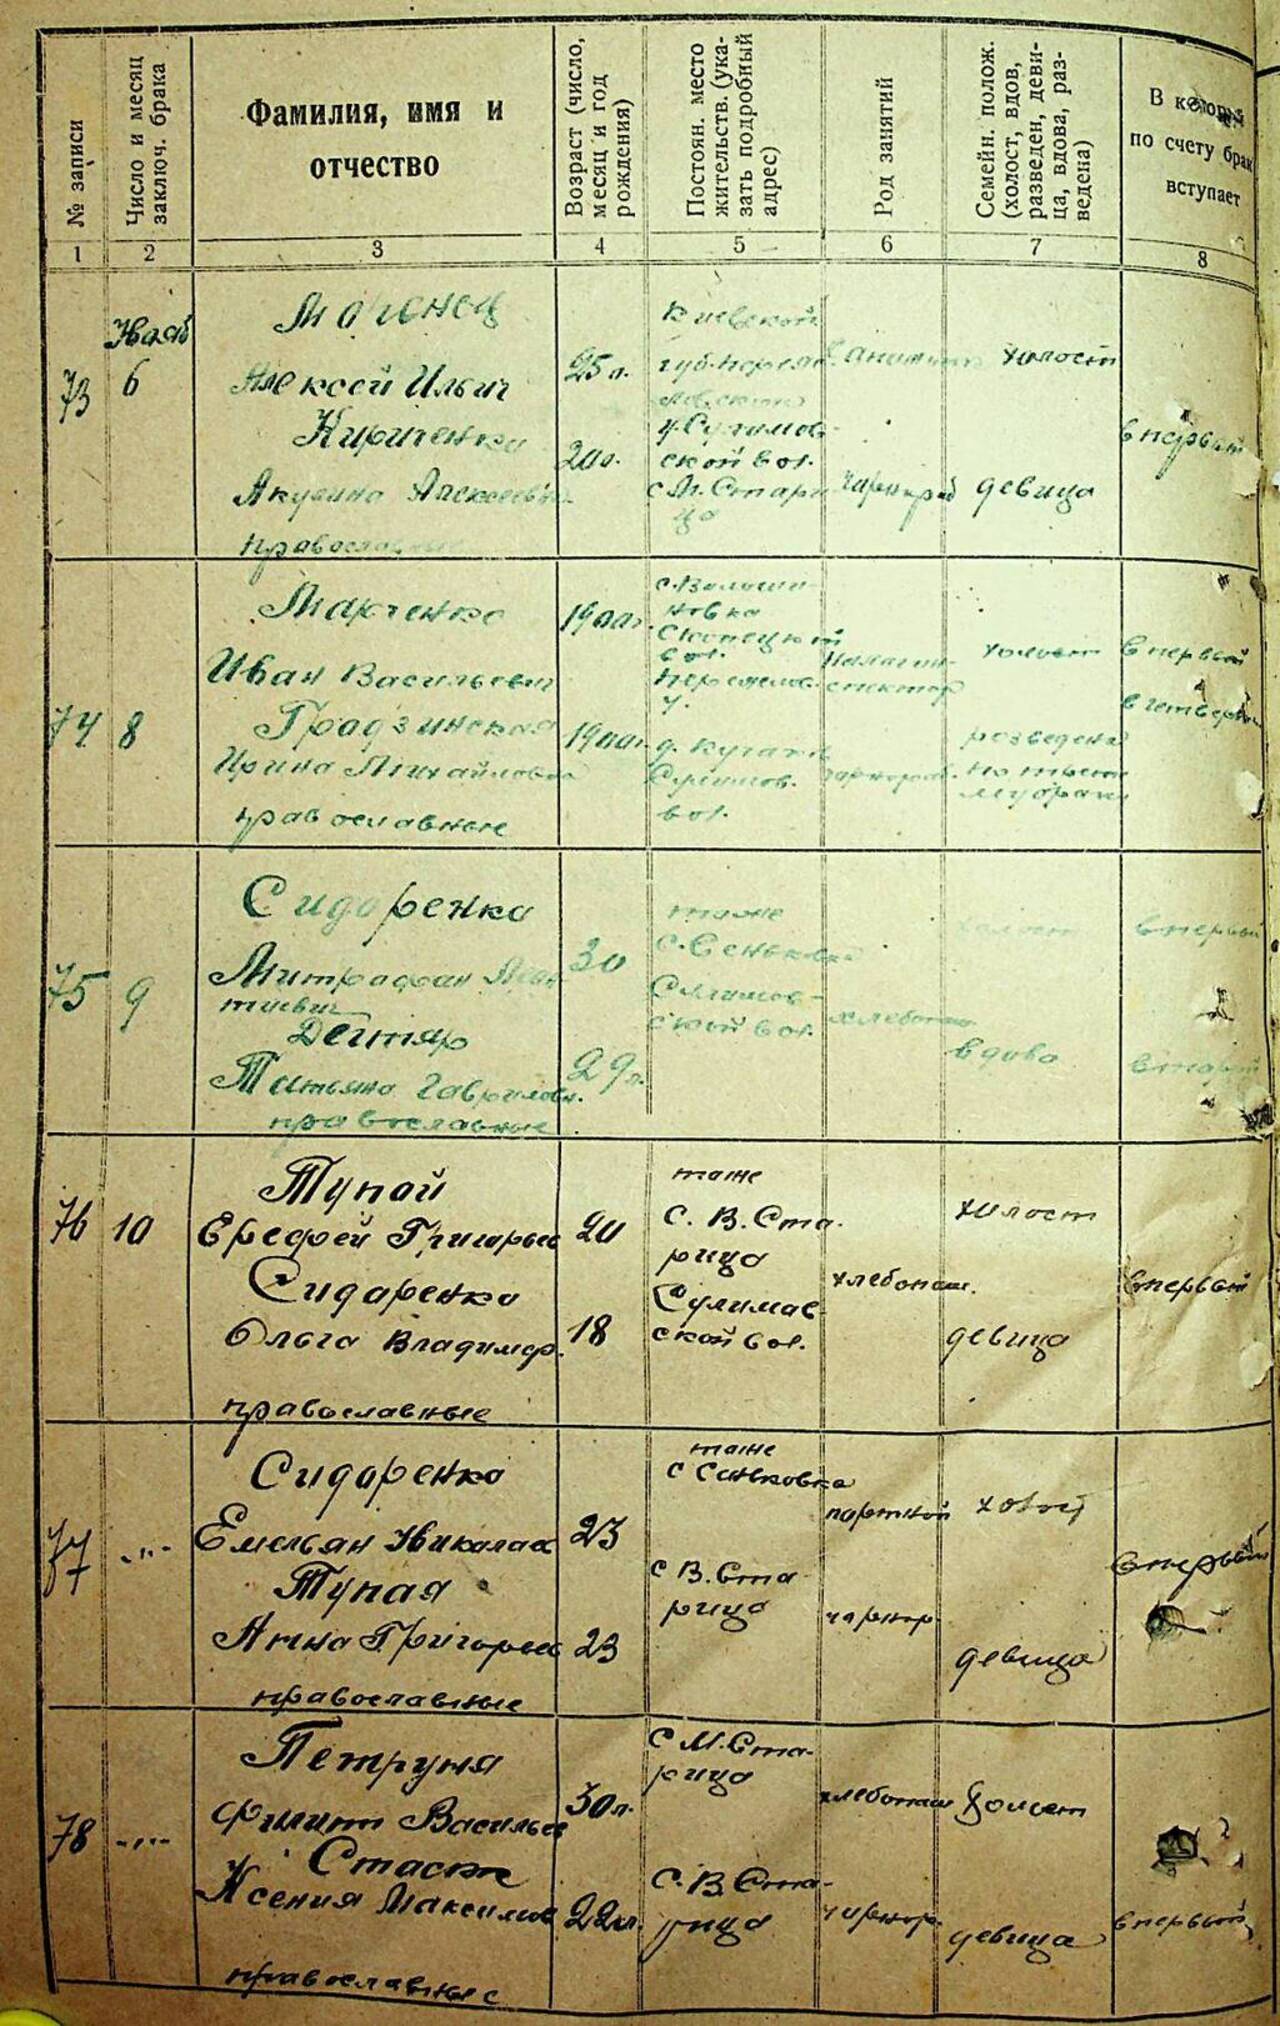 № записи
Число и месяц
заключ. брака
Фамилия, имя и
отчество
Возраст (число,
месяц и год
рождения)
Постоян. место
жительств. (ука-
зать подробный
адрес)
Род занятий
Семейн. полож.
(холост, вдов,
разведен, деви-
ца, вдова, раз-
ведена)
В который
по счету брак
вступает
1 2 3 4 5 6 7 8
73
Нояб
6
Алексей Ильич
Кириченко
Акулина Алексеевна
православные
25 л.
20 л.
Киевской
губ.
у. Сулимов-
ской вол.
с М. Стари
ца
холост
девица
впервый
74
8
Марченко
Иван Васильевич
Градзинская
Ирина Михайловна
православные
1900г.
1900г.
с. Волошин-
новка
вол.
у.
Сулимов.
вол.
холост
разведена
впервый
75
9
Сидоренко
Митрофан
тиевич
Дегтяр
Татьяна Гавриловн.
православные
30
29 л.
тоже
с. Сеньковка
Сулимов-
ской вол.
хлебопаш
холост
вдова
впервый
вторый
76
10
Тупой
Ерефей Григорьев
Сидаренко
Ольга Владимер.
православные
20
18
тоже
с. В. Ста-
рица
Сулимов-
ской вол.
хлебопаш.
холост
девица
впервый
77
-"-
Сидоренко
Емельян Николаев
Тупая
Анна Григорьев
православные
23
23
тоже
с Санковка
с В. Ста-
рица
портной
чернор.
холост
девица
впервый
78
-"-
Петруня
Филипп Васильев
Стасюк
Ксения Максимов
православные
30 л.
22 л.
с М. Ста-
рица
с. В. Ста-
рица
хлебопаш
чернор.
холост
девица
впервый